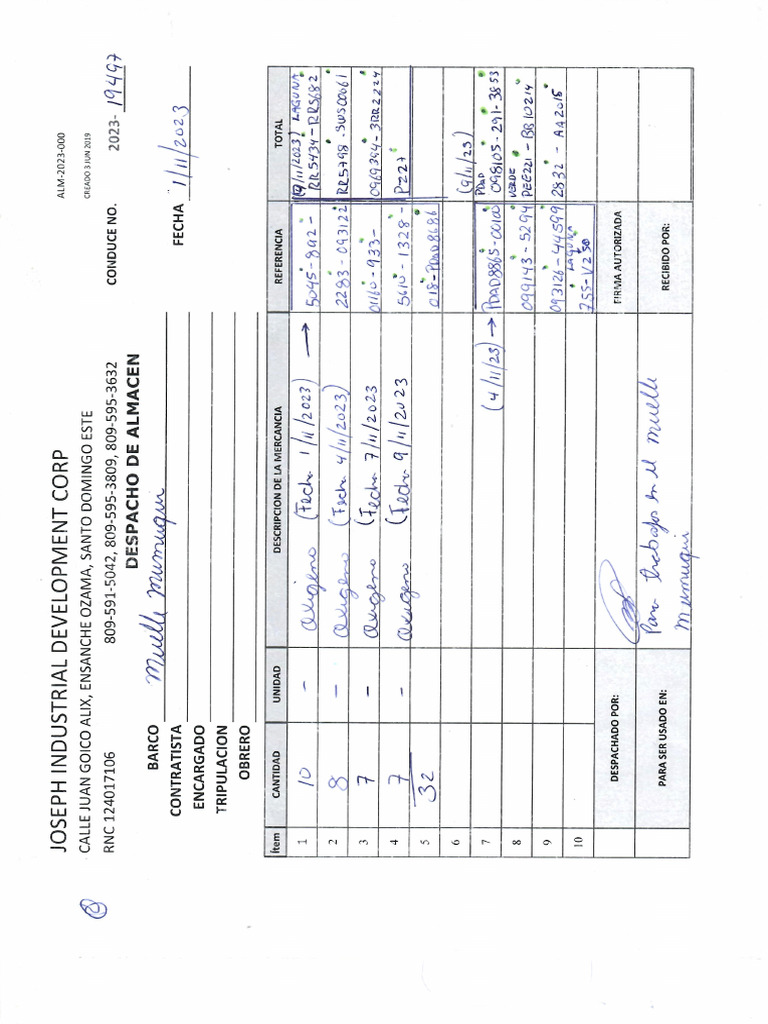 JOSEPH INDUSTRIAL DEVELOPMENT CORP
CALLE JUAN GOICO ALIX, ENSANCHE OZAMA, SANTO DOMINGO ESTE
RNC 124017106 809-591-5042, 809-595-3809, 809-595-3632
ALM-2023-000
CREADO 3 JUN 2019
DESPACHO DE ALMACEN
CONDUCE NO. 2023- 19497
BARCO Muelle Mumuqui
FECHA 1/11/2023
CONTRATISTA
ENCARGADO
TRIPULACION
OBRERO
ítem CANTIDAD UNIDAD DESCRIPCION DE LA MERCANCIA REFERENCIA TOTAL
1 10 - Oxigeno (Fecha 1/11/2023) → 5045-892- (9/11/2023) LAGUNA RR5434-RR5682
2 8 - Oxigeno (Fecha 4/11/2023) 2283-093122 RR5798-SWS00061
3 7 - Oxigeno (Fecha 7/11/2023 01160-933- 0969394-3RR2224
4 7 - Oxigeno (Fecha 9/11/2023 5610-1328- PZ27
5 32 018-PDAD8686
6 (9/11/23)
7 (4/11/23) → PDAD8865-00100 PDAD 098105-291-3853
8 099143-5294 VERDE PEE221-BB10214
9 093126-44599 2832-AA2015
10 LAGUNA 755-V250
DESPACHADO POR: FIRMA AUTORIZADA
PARA SER USADO EN: Para trabajos en el muelle Mumuqui RECIBIDO POR: